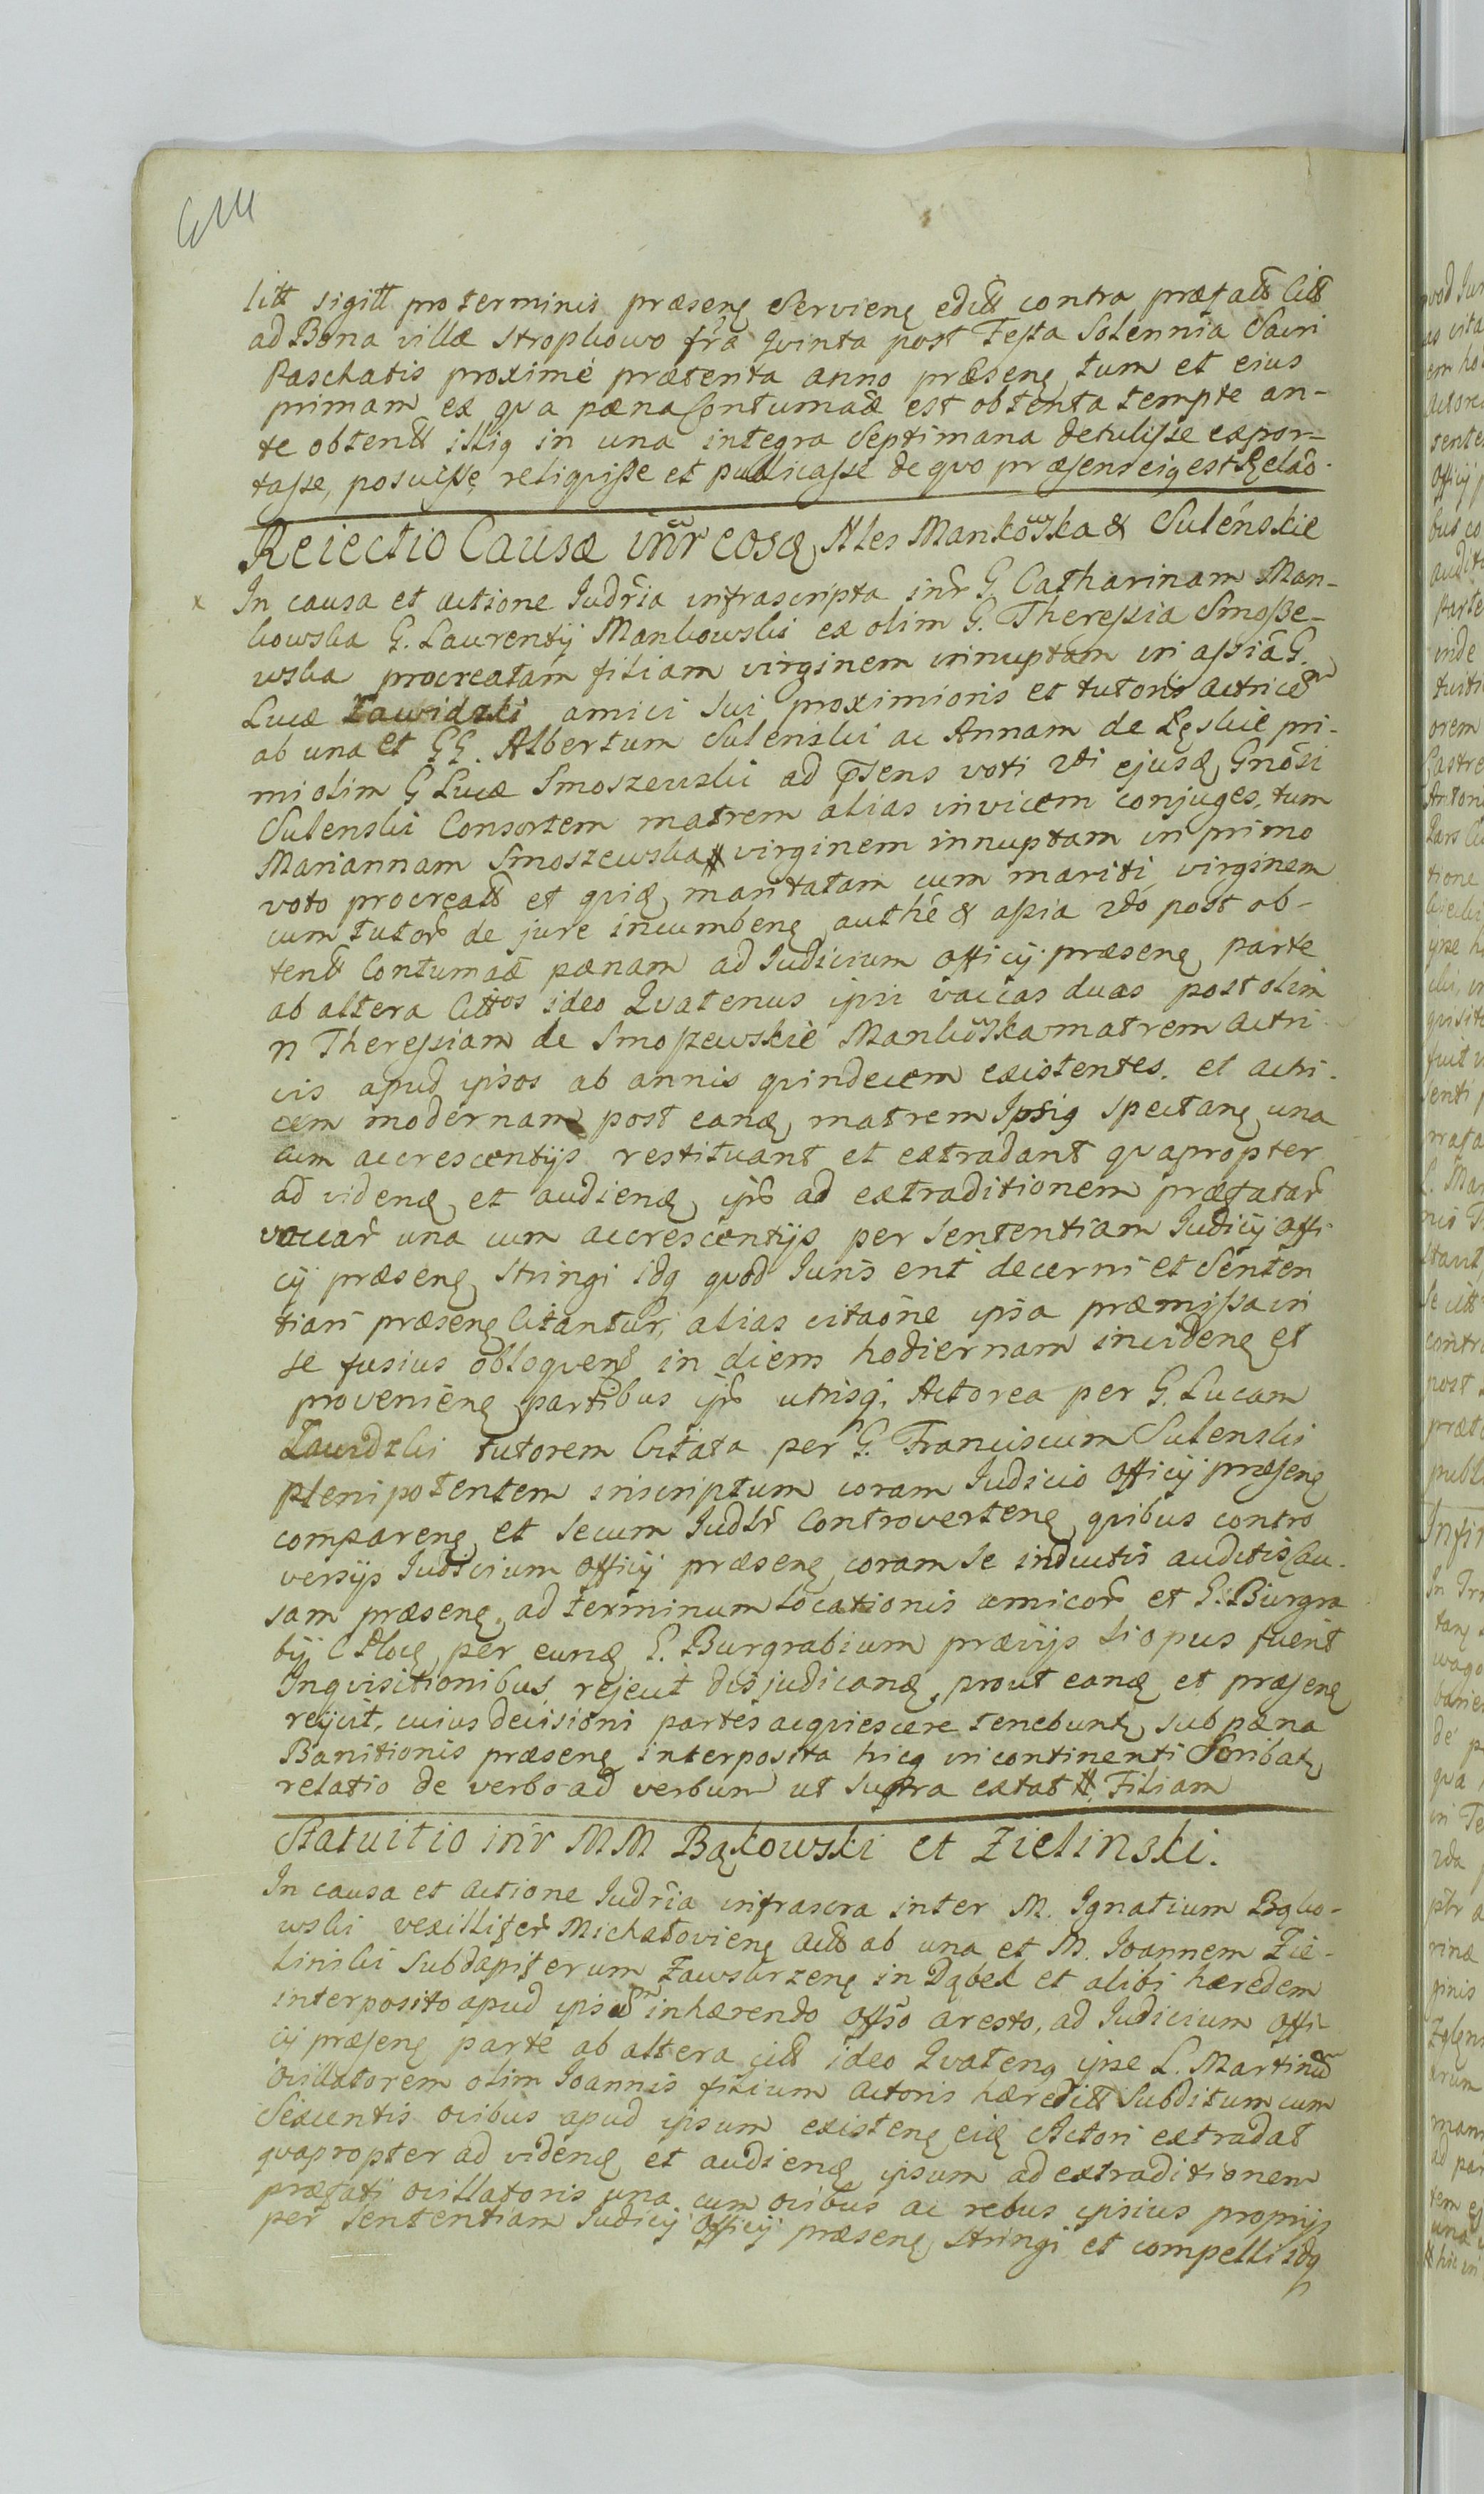 litt sigitt pro terminis præsenę Servienę editt contra præfatt Citt
ad Bona villæ Strophowo fr̃a Qvinta post Festa Solennia Sacri
Paschatis proximè præterita anno præsenę tum et eius
primam ex qva pæna Contumaciæ est obtenta tempte an-
te obtentt illię in una integra Septimana detulisse expor-
tasse, posuisse, reliqvisse et publicasse de qvo præsens eię est Relão.
Reiectio Causæ inr̃ eosdę Nles Mankowska & Suleńskie
x In causa et actione Iudr̃ia infrascripta inr̃ G. Catharinam Man-
kowska G. Laurentij Mankowski ex olim G. Theressia Smosze-
wska procreatam filiam virginem innuptam in assiã G.
Lucæ Zawidzki amici sui proximioris et tutoris actricem
ab una et GG. Albertum Sulenski ac Annam de Lęskie pri-
mi olim G Lucæ Smoszewski ad p̃sens voti 2di ejusdę Gnõsi
Sulenski Consortem matrem alias invicem conjuges, tum
Mariannam Smoszewska # virginem innuptam in primo
voto procreatt et qvidę maritatam cum mariti virginem
cum tutor̃ de jure incumbenę authẽ & assia 2do post ob-
tentt Contumaciæ pænam ad Iudicium officij præsenę parte
ab altera Cittos ideo Qvatenus ipsi vaccas duas post olim
n Theressiam de Smoszewskie Mankowska matrem actri-
cis apud ipsos ab annis qvindecem existentes. et actri-
cem modernam post eandę matrem Ipsię spectanę una
cum accrescentijs restituant et extradant qvapropter
ad videndę et audiendę ips̃ ad extraditionem præfatar̃
vaccar̃ una cum accrescentijs per sententiam Iudicij offi-
cij præsenę stringi idq qvod Iuris erit decerni et Senten
tiari præsenę Citantur, alias citaõne ipsa præmissa in
se fusius obloqvend in diem hodiernam incidenę et
provenienę partibus ips̃ utrisq, Actorea per G. Lucam
Zawidzki tutorem Citata per G. Franciscum Sulenski
plenipotentem inscriptum coram Iudicio officij præsenę
comparenę et secum Iudlr̃ Controvertenę qvibus contro
versijs Iudicium officij præsenę coram se inductis auditis Cau-
sam præsenę ad terminum locationis amicor̃ et G. Burgra
bij C Plocę per eundę G. Burgrabium prævijs si opus fuerit
Inqvisitionibus rejecit disjudicandę, prout eandę et præsenę
rejicit, cuius decisioni partes acqviescere tenebuntę sub pæna
Banitionis præsenę interposita hicq in continenti Scribatę
relatio de verbo ad verbum ut supra extat # Filiam
Statuitio inr̃ MM Bąkowski et Zielinski.
In causa et actione Iudr̃ia infrascra inter M. Ignatium Bąko-
wski vexilliger̃ Michałovienę actt ab una et M. Ioannem Zie-
linski Subdapiferum Zawskrzenę in Dąbek et alibi hæredem
interposito apud ipsum inhærendo offso aresto, ad Iudicium offi-
cij præsenę parte ab altera citt ideo Qvatenę ipse L. Martinum
ovillatorem olim Ioannis filium actoris hæreditt Subditum cum
Sexcentis ovibus apud ipsum existenę eidę Actori extradat
qvapropter ad videndę et audiendę ipsum ad extraditionem
præfati ovillatoris una cum ovibus ac rebus ipsius proprijs
per Sententiam Iudicij Officij præsenę stringi et compelli idq